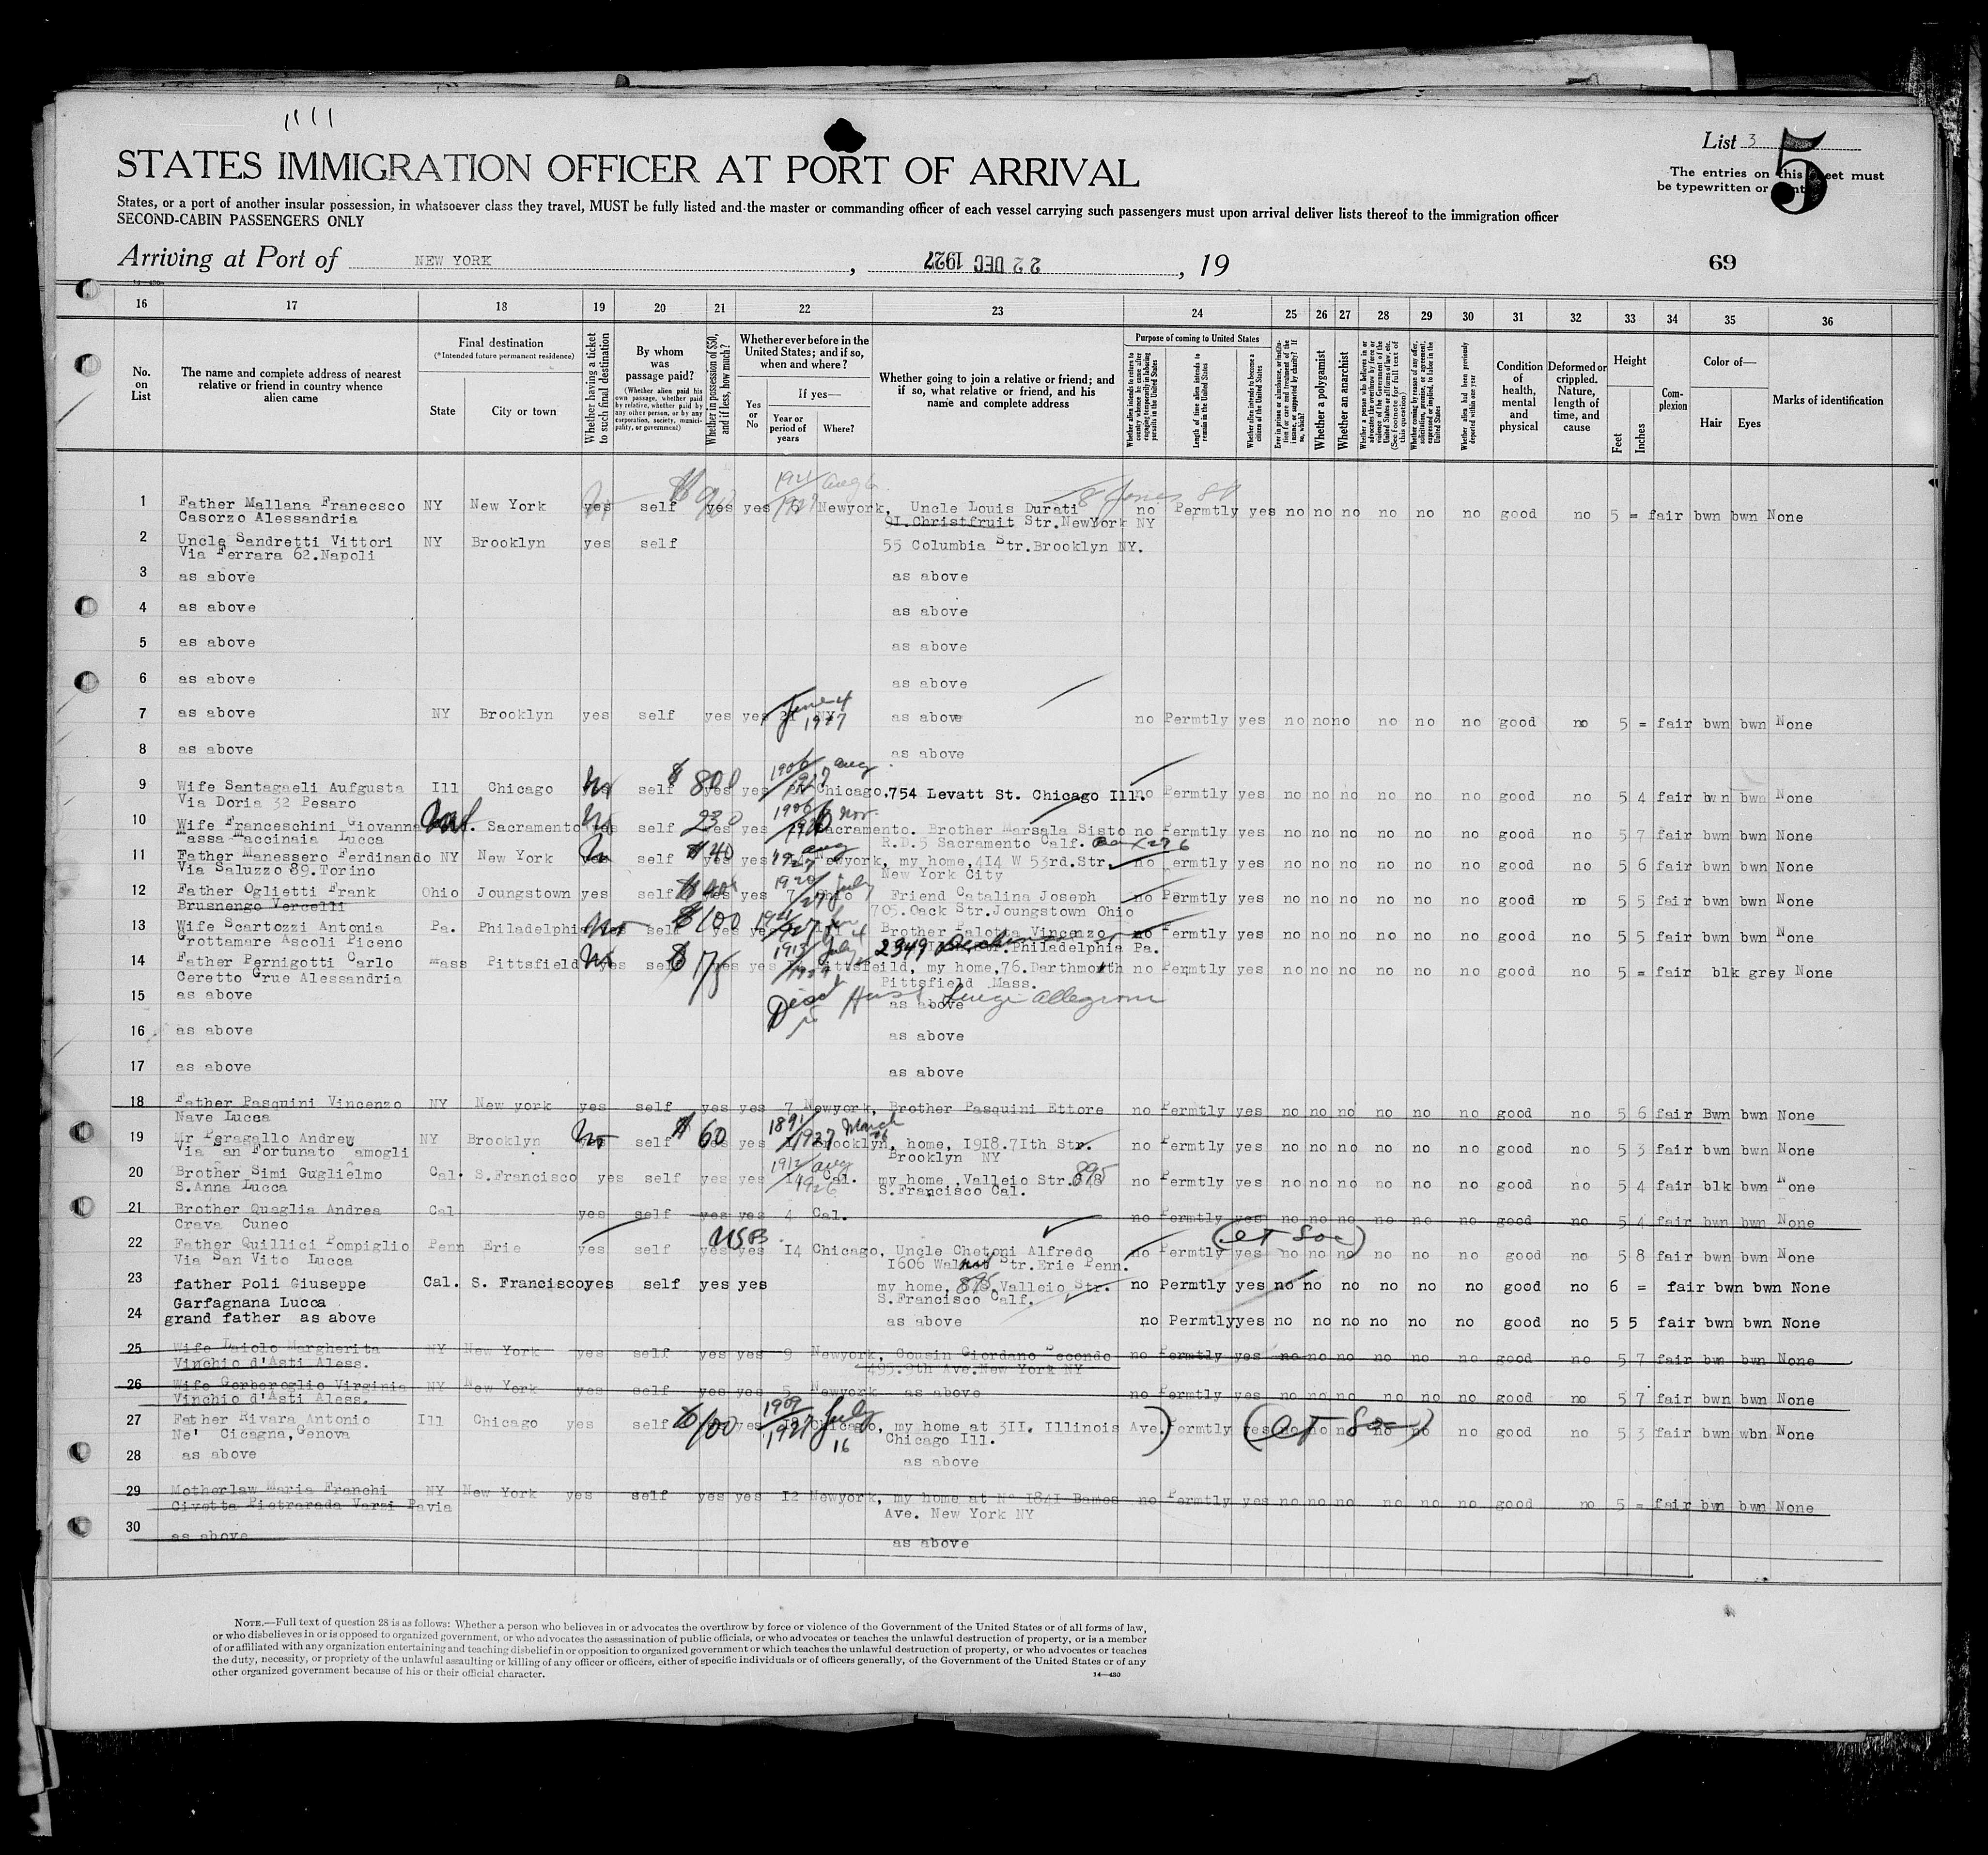 List 3
5
STATES IMMIGRATION OFFICER AT PORT OF ARRIVAL
The entries on this sheet must
be typewritten or
States, or a port of another insular possession, in whatsoever class they travel, MUST be fully listed and the master or commanding officer of each vessel carrying such passengers must upon arrival deliver lists thereof to the immigration officer
SECOND-CABIN PASSENGERS ONLY
Arriving at Port of NEW YORK , 22 DEC 1927 , 19
69
16 17 18 19 20 21 22 23 24 25 26 27 28 29 30 31 32 33 34 35 36
No. on List
The name and complete address of nearest relative or friend in country whence alien came
Final destination
(*Intended future permanent residence)
State
City or town
Whether having a ticket to such final destination
By whom was passage paid?
(Whether alien paid his own passage, whether paid by relative, whether paid by any other person, or by any corporation, society, municipality, or government)
Whether in possession of $50, and if less, how much?
Whether ever before in the United States; and if so, when and where?
Yes or No
If yes—
Year or period of years
Where?
Whether going to join a relative or friend; and if so, what relative or friend, and his name and complete address
Purpose of coming to United States
Length of time alien intends to remain in the United States
Whether alien intends to become a citizen of the United States
Whether a polygamist
Whether an anarchist
Whether alien had been previously deported within one year
Condition of health, mental and physical
Deformed or crippled. Nature, length of time, and cause
Height
Feet
Inches
Complexion
Color of—
Hair
Eyes
Marks of identification
1 Father Mallana Franecsco NY New York yes self yes yes 6 Newyork, Uncle Louis Durati 8 Jones St no Permtly yes no no no no no no good no 5 = fair bwn bwn None
Casorzo Alessandria 91.Christfruit Str.NewYork NY
2 Uncle Sandretti Vittori NY Brooklyn yes self 55 Columbia Str.Brooklyn NY.
Via Ferrara 62.Napoli
3 as above as above
4 as above as above
5 as above as above
6 as above as above
7 as above NY Brooklyn yes self yes yes 21 NY June 4 1927 as above no Permtly yes no no no no no no good no 5 = fair bwn bwn None
8 as above as above
9 Wife Santagaeli Aufgusta Ill Chicago No self $ 800 yes yes 1906 1927 aug Chicago. 754 Levatt St. Chicago Ill. no Permtly yes no no no no no no good no 5 4 fair bwn bwn None
Via Doria 32 Pesaro
10 Wife Franceschini Giovanna Sacramento No self 230 yes yes 1906 Nov. Sacramento. Brother Marsala Sisto no Permtly yes no no no no no no good no 5 7 fair bwn bwn None
Massa Maccinaia Lucca R.D.5 Sacramento Calf. Box 276
11 Father Manessero Ferdinando NY New York self $ 40 yes yes aug 1927 Newyork, my home,414 W 53rd.Str. no ermtly yes no no no no no no good no 5 6 fair bwn bwn None
Via Saluzzo 89.Torino New York City
12 Father Oglietti Frank Ohio Joungstown yes self yes yes 1920 July 7 Ohio Friend Catalina Joseph no Permtly yes no no no no no no good no 5 5 fair bwn bwn None
Brusnengo Vercelli 705.Oack Str.Joungstown Ohio
13 Wife Scartozzi Antonia Pa. Philadelphia No self $ 100 yes Brother Palotta Vincenzo no Permtly yes no no no no no no good no 5 5 fair bwn bwn None
Grottamare Ascoli Piceno 2349 Philadelphia Pa.
14 Father Pernigotti Carlo Mass Pittsfield No yes self $ 75 yes yes 1913 July Pittsfeild, my home,76.Darthmouth no Permtly yes no no no no no no good no 5 = fair blk grey None
Ceretto Grue Alessandria Pittsfield Mass.
15 as above as above Luigi Allegroni
16 as above as above
17 as above as above
18 Father Pasquini Vincenzo NY New york yes self yes yes 7 Newyork, Brother Pasquini Ettore no Permtly yes no no no no no no good no 5 6 fair Bwn bwn None
Nave Lucca
19 Mr Peragallo Andrew NY Brooklyn No self $ 60 yes 1891 1927 March Brooklyn, home, 1918.71th Str. no Permtly yes no no no no no no good no 5 3 fair bwn bwn None
Via San Fortunato Camogli Brooklyn NY
20 Brother Simi Guglielmo Cal. S.Francisco yes self yes yes 1912 aug 1926 14 Cal. my home ,Valleio Str. 895 no Permtly yes no no no no no no good no 5 4 fair blk bwn None
S.Anna Lucca S.Francisco Cal.
21 Brother Quaglia Andrea Cal yes self yes yes 4 Cal. no Permtly yes no no no no no no good no 5 4 fair bwn bwn None
Crava Cuneo
22 Father Quillici Pompiglio Penn Erie yes self USB yes yes 14 Chicago, Uncle Chetoni Alfredo no Permtly yes no no no no no no good no 5 8 fair bwn bwn None
Via San Vito Lucca 1606 Walnut Str.Erie Penn.
23 father Poli Giuseppe Cal. S. Francisco yes self yes yes my home, 895,Valleio Str. no Permtly yes no no no no no no good no 6 = fair bwn bwn None
Garfagnana Lucca S.Francisco Calf.
24 grand father as above as above no Permtly yes no no no no no no good no 5 5 fair bwn bwn None
25 Wife Laiolo Margherita NY New York yes self yes yes 9 Newyork, Cousin Giordano Secondo no Permtly yes no no no no no no good no 5 7 fair bwn bwn None
Vinchio d'Asti Aless. 495.9th Ave.New York NY
26 Wife Gerberoglio Virginia NY New York yes self yes yes 5 Newyork as above no Permtly yes no no no no no no good no 5 7 fair bwn bwn None
Vinchio d'Asti Aless.
27 Father Rivara Antonio Ill Chicago yes self $ 100 yes 1909 1927 July 16 Chicago, my home at 311. Illinois Ave. Permtly yes no no no no no no good no 5 3 fair bwn wbn None
Ne' Cicagna,Genova Chicago Ill.
28 as above as above
29 Motherlaw Maria Franchi NY New York yes self yes yes 12 Newyork, my home at No 1841 Bames no Permtly yes no no no no no no good no 5 = fair bwn bwn None
Civetta Pietrarada Varzi Pavia Ave. New York NY
30 as above as above
NOTE.—Full text of question 28 is as follows: Whether a person who believes in or advocates the overthrow by force or violence of the Government of the United States or of all forms of law,
or who disbelieves in or is opposed to organized government, or who advocates the assassination of public officials, or who advocates or teaches the unlawful destruction of property, or is a member
of or affiliated with any organization entertaining and teaching disbelief in or opposition to organized government or which teaches the unlawful destruction of property, or who advocates or teaches
the duty, necessity, or propriety of the unlawful assaulting or killing of any officer or officers, either of specific individuals or of officers generally, of the Government of the United States or of any
other organized government because of his or their official character.
14—430